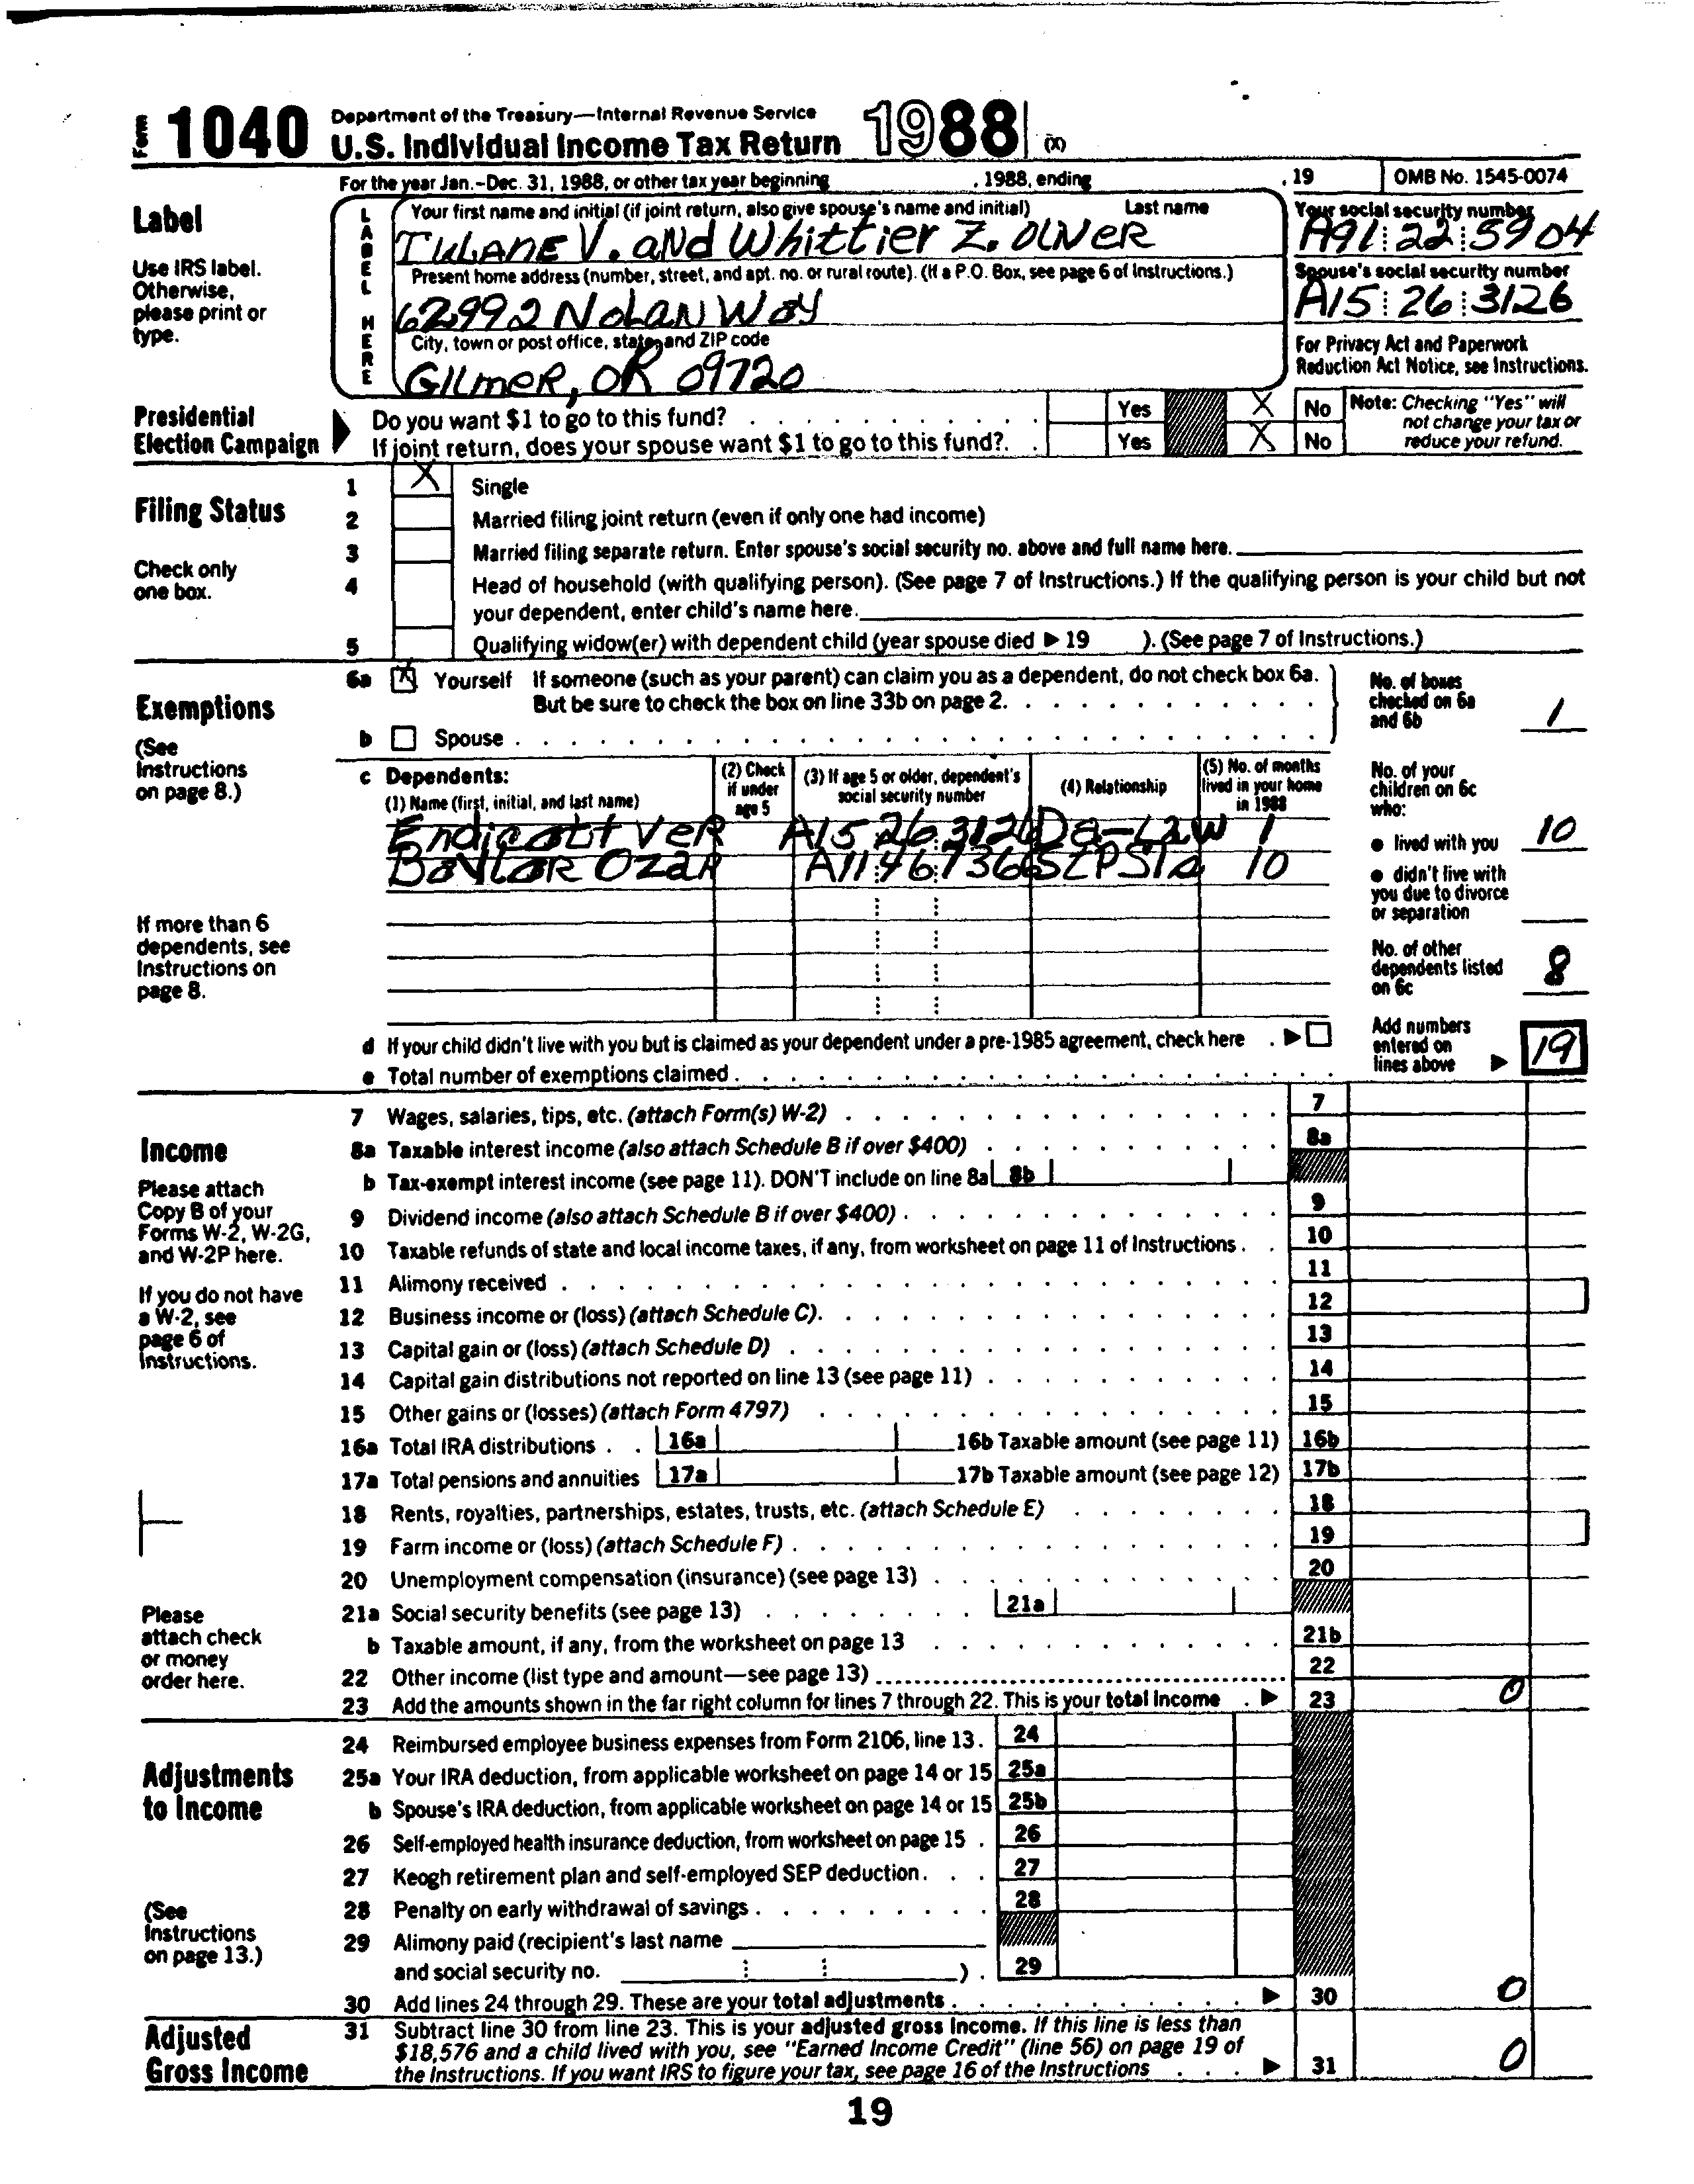 Form 1040 Department of the Treasury—Internal Revenue Service
U.S. Individual Income Tax Return 1988 (X)
For the year Jan.-Dec. 31, 1988, or other tax year beginning , 1988, ending , 19 OMB No. 1545-0074
Label
Use IRS label.
Otherwise,
please print or
type.
LABEL HERE
Your first name and initial (if joint return, also give spouse's name and initial) Last name
TULANE V. and Whittier Z. OLIVER
Present home address (number, street, and apt. no. or rural route). (If a P.O. Box, see page 6 of Instructions.)
62992 NOLAN WAY
City, town or post office, state, and ZIP code
GILMER, OR 09720
Your social security number
A91 22 5904
Spouse's social security number
A15 26 3126
For Privacy Act and Paperwork
Reduction Act Notice, see Instructions.
Presidential
Election Campaign
Do you want $1 to go to this fund? Yes X No
If joint return, does your spouse want $1 to go to this fund? Yes X No
Note: Checking "Yes" will
not change your tax or
reduce your refund.
Filing Status
Check only
one box.
1 X Single
2 Married filing joint return (even if only one had income)
3 Married filing separate return. Enter spouse's social security no. above and full name here.
4 Head of household (with qualifying person). (See page 7 of Instructions.) If the qualifying person is your child but not
your dependent, enter child's name here.
5 Qualifying widow(er) with dependent child (year spouse died ▶ 19 ). (See page 7 of Instructions.)
Exemptions
(See
Instructions
on page 8.)
If more than 6
dependents, see
Instructions on
page 8.
6a X Yourself If someone (such as your parent) can claim you as a dependent, do not check box 6a.
But be sure to check the box on line 33b on page 2.
b Spouse
No. of boxes
checked on 6a
and 6b 1
c Dependents:
(1) Name (first, initial, and last name)
(2) Check
if under
age 5
(3) If age 5 or older, dependent's
social security number
(4) Relationship
(5) No. of months
lived in your home
in 1988
Endicott VER A15 26 3126 Da-LAW 1
BAYLOR OZAR A11 46 7366 STPSIS 10
No. of your
children on 6c
who:
● lived with you 10
● didn't live with
you due to divorce
or separation
No. of other
dependents listed
on 6c 8
d If your child didn't live with you but is claimed as your dependent under a pre-1985 agreement, check here ▶
e Total number of exemptions claimed
Add numbers
entered on
lines above ▶ 19
Income
Please attach
Copy B of your
Forms W-2, W-2G,
and W-2P here.
If you do not have
a W-2, see
page 6 of
Instructions.
Please
attach check
or money
order here.
7 Wages, salaries, tips, etc. (attach Form(s) W-2) 7
8a Taxable interest income (also attach Schedule B if over $400) 8a
b Tax-exempt interest income (see page 11). DON'T include on line 8a 8b
9 Dividend income (also attach Schedule B if over $400) 9
10 Taxable refunds of state and local income taxes, if any, from worksheet on page 11 of Instructions 10
11 Alimony received 11
12 Business income or (loss) (attach Schedule C) 12
13 Capital gain or (loss) (attach Schedule D) 13
14 Capital gain distributions not reported on line 13 (see page 11) 14
15 Other gains or (losses) (attach Form 4797) 15
16a Total IRA distributions 16a 16b Taxable amount (see page 11) 16b
17a Total pensions and annuities 17a 17b Taxable amount (see page 12) 17b
18 Rents, royalties, partnerships, estates, trusts, etc. (attach Schedule E) 18
19 Farm income or (loss) (attach Schedule F) 19
20 Unemployment compensation (insurance) (see page 13) 20
21a Social security benefits (see page 13) 21a
b Taxable amount, if any, from the worksheet on page 13 21b
22 Other income (list type and amount—see page 13) 22
23 Add the amounts shown in the far right column for lines 7 through 22. This is your total income ▶ 23 0
Adjustments
to Income
(See
Instructions
on page 13.)
24 Reimbursed employee business expenses from Form 2106, line 13. 24
25a Your IRA deduction, from applicable worksheet on page 14 or 15 25a
b Spouse's IRA deduction, from applicable worksheet on page 14 or 15 25b
26 Self-employed health insurance deduction, from worksheet on page 15 26
27 Keogh retirement plan and self-employed SEP deduction 27
28 Penalty on early withdrawal of savings 28
29 Alimony paid (recipient's last name
and social security no. ) 29
30 Add lines 24 through 29. These are your total adjustments ▶ 30 0
Adjusted
Gross Income
31 Subtract line 30 from line 23. This is your adjusted gross income. If this line is less than
$18,576 and a child lived with you, see "Earned Income Credit" (line 56) on page 19 of
the Instructions. If you want IRS to figure your tax, see page 16 of the Instructions ▶ 31 0
19